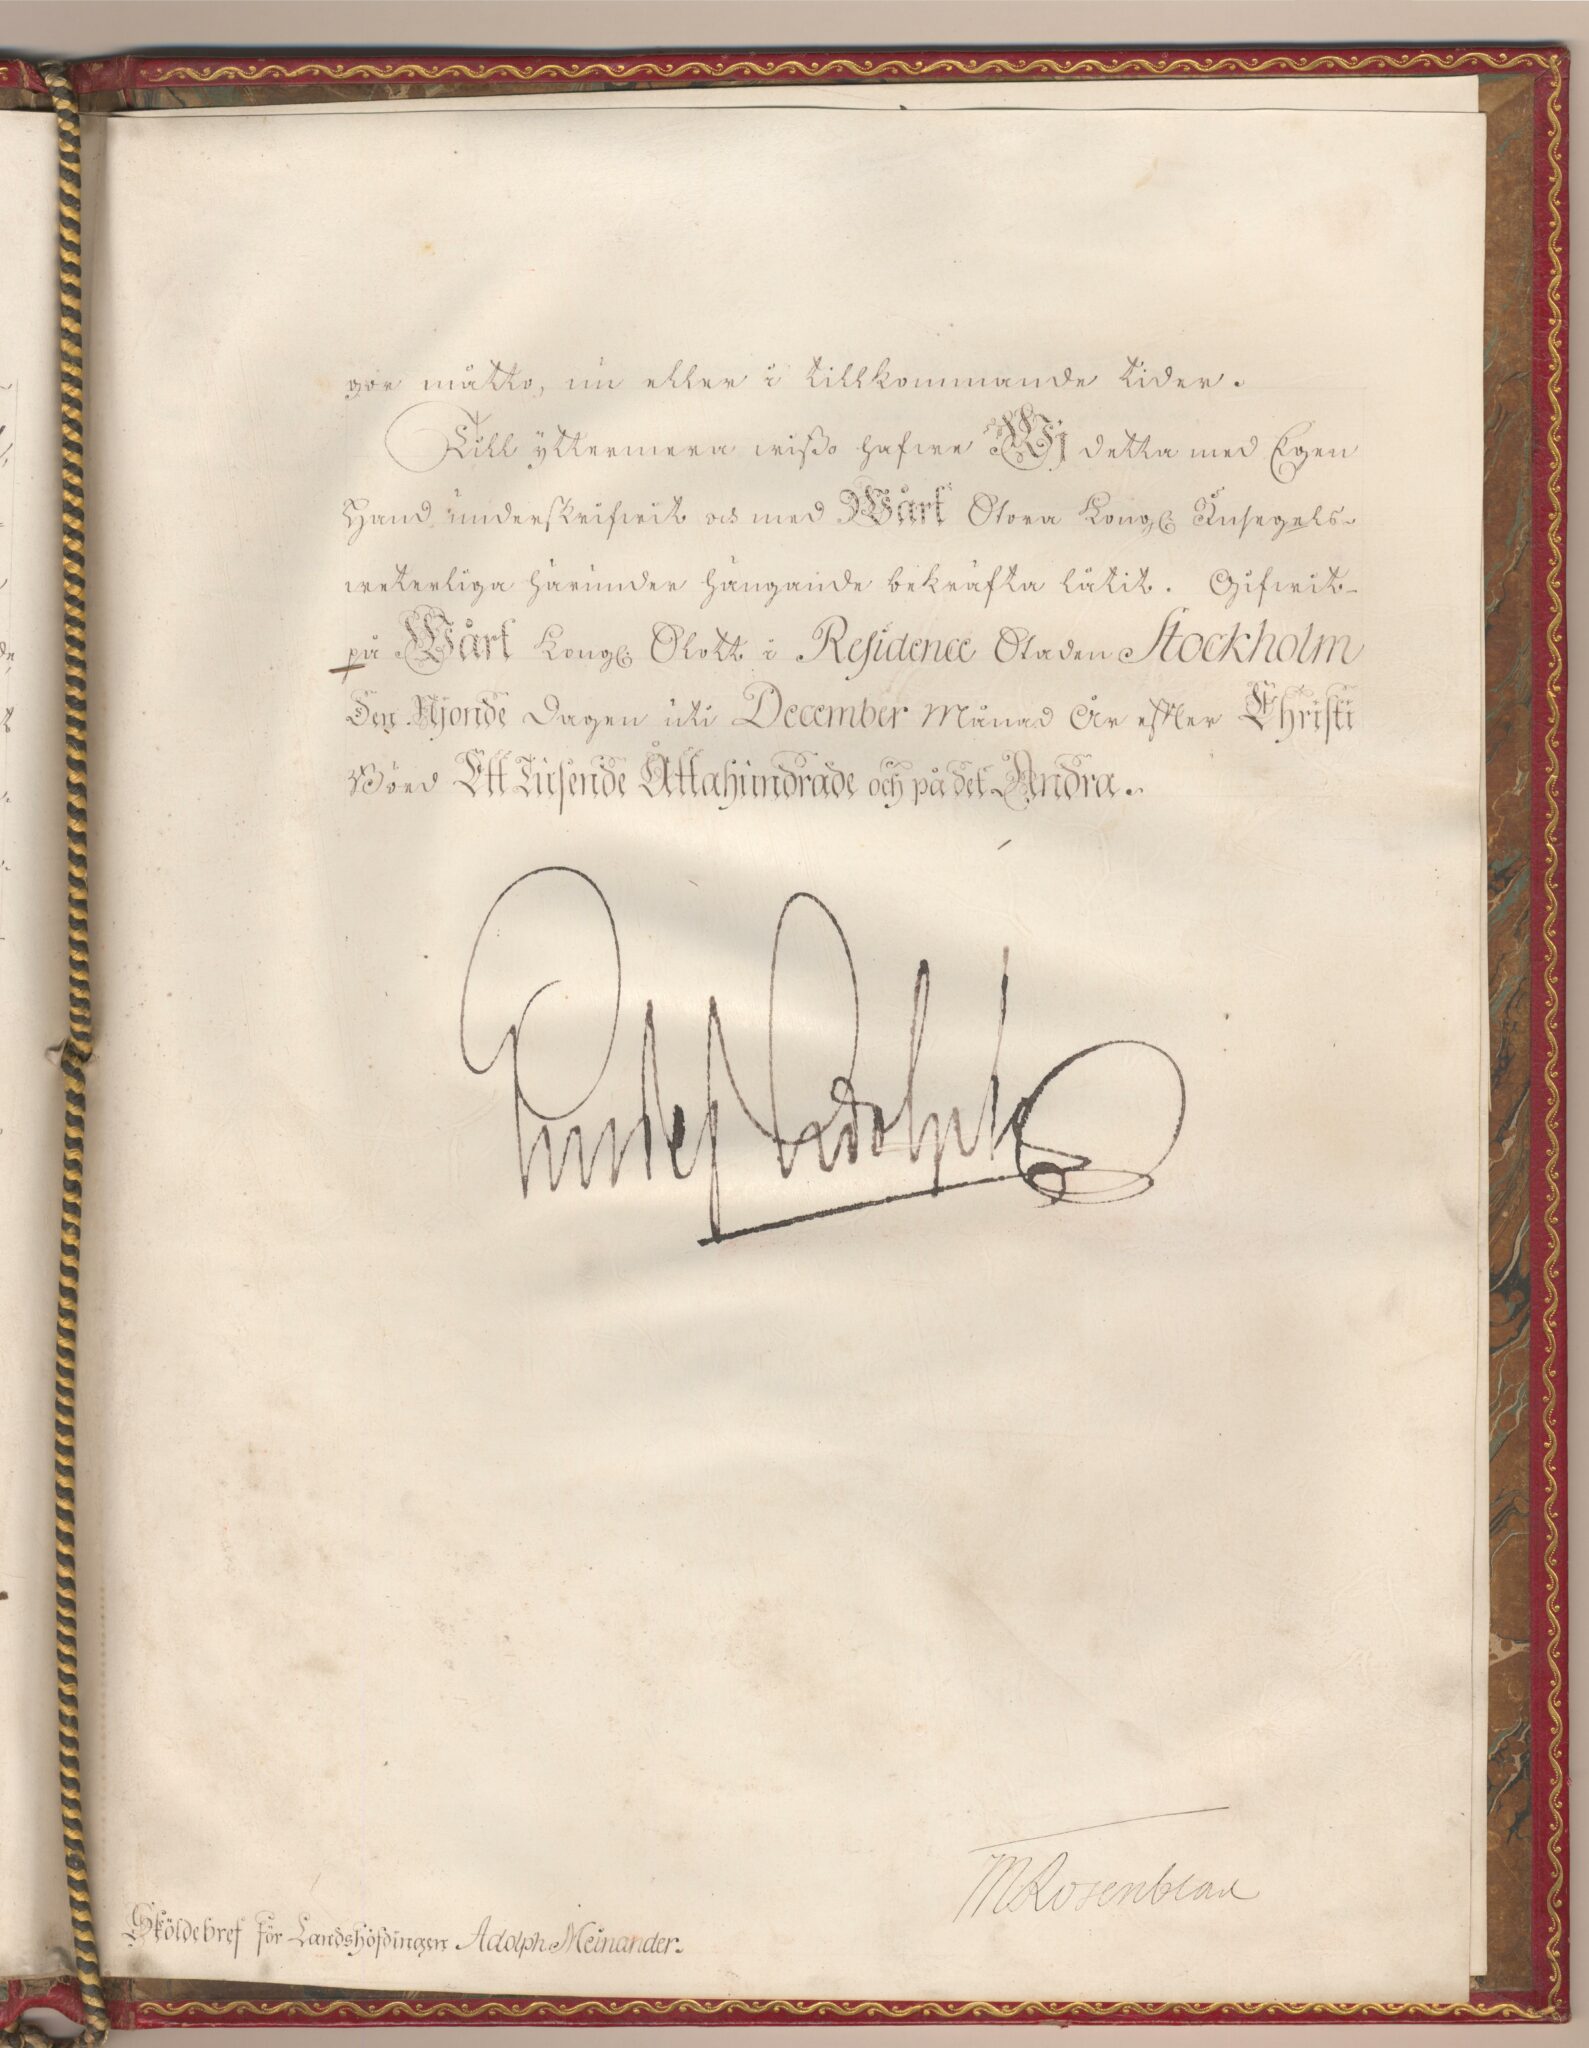 gör måtto, nu eller i tillkommande tider.
Till yttermera wißo hafwe Wij detta med Egen
Hand underskrifwit och med Wårt Stora Kongl. Insegels
weterliga härunder hängande bekräfta låtit. Gifwit
på Wårt Kongl. Slott i Residence Staden Stockholm
Den Njonde Dagen uti December Månad År efter Christi
Börd Ett Tusende Åttahundrade och på det Andra.
Gustaf Adolph
M Rosenblad
Sköldebref för Landshöfdingen Adolph Meinander.